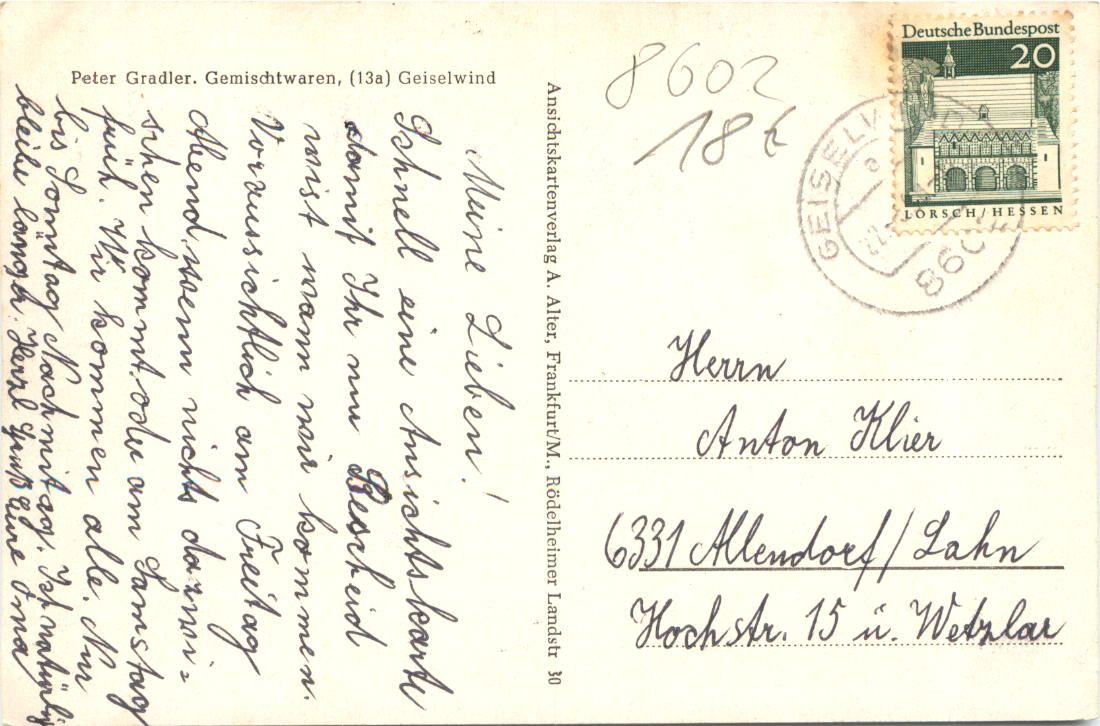 Peter Gradler. Gemischtwaren, (13a) Geiselwind
Meine Lieben!
Schnell eine Ansichtskarte
damit Ihr nu Bescheid
wist wann wir kommen.
Voraussichtlich am Freitag
Abend, wenn nichts dazwi=
schen kommt. oder am Samstag
früh. Wir kommen alle. Nur
bis Sonntag Nachmitag. Ist natürlig
bleibe langer. Herzl Gruß Eure Oma
Ansichtskartenverlag A. Alter, Frankfurt/M., Rödelheimer Landstr 30
8602
18 €
Deutsche Bundespost
20
LORSCH/HESSEN
GEISELWIND
8602
Herrn
Anton Klier
6331 Allendorf/Lahn
Hochstr. 15 ü. Wetzlar